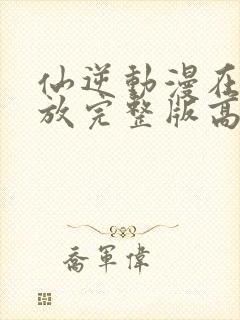 仙逆動漫在
放完整版高
喬軍偉